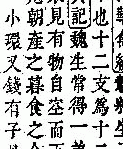 也十二支為十
記魏生常得一
見有物自空而
鬼朝產之暮食之
小環又錢有子